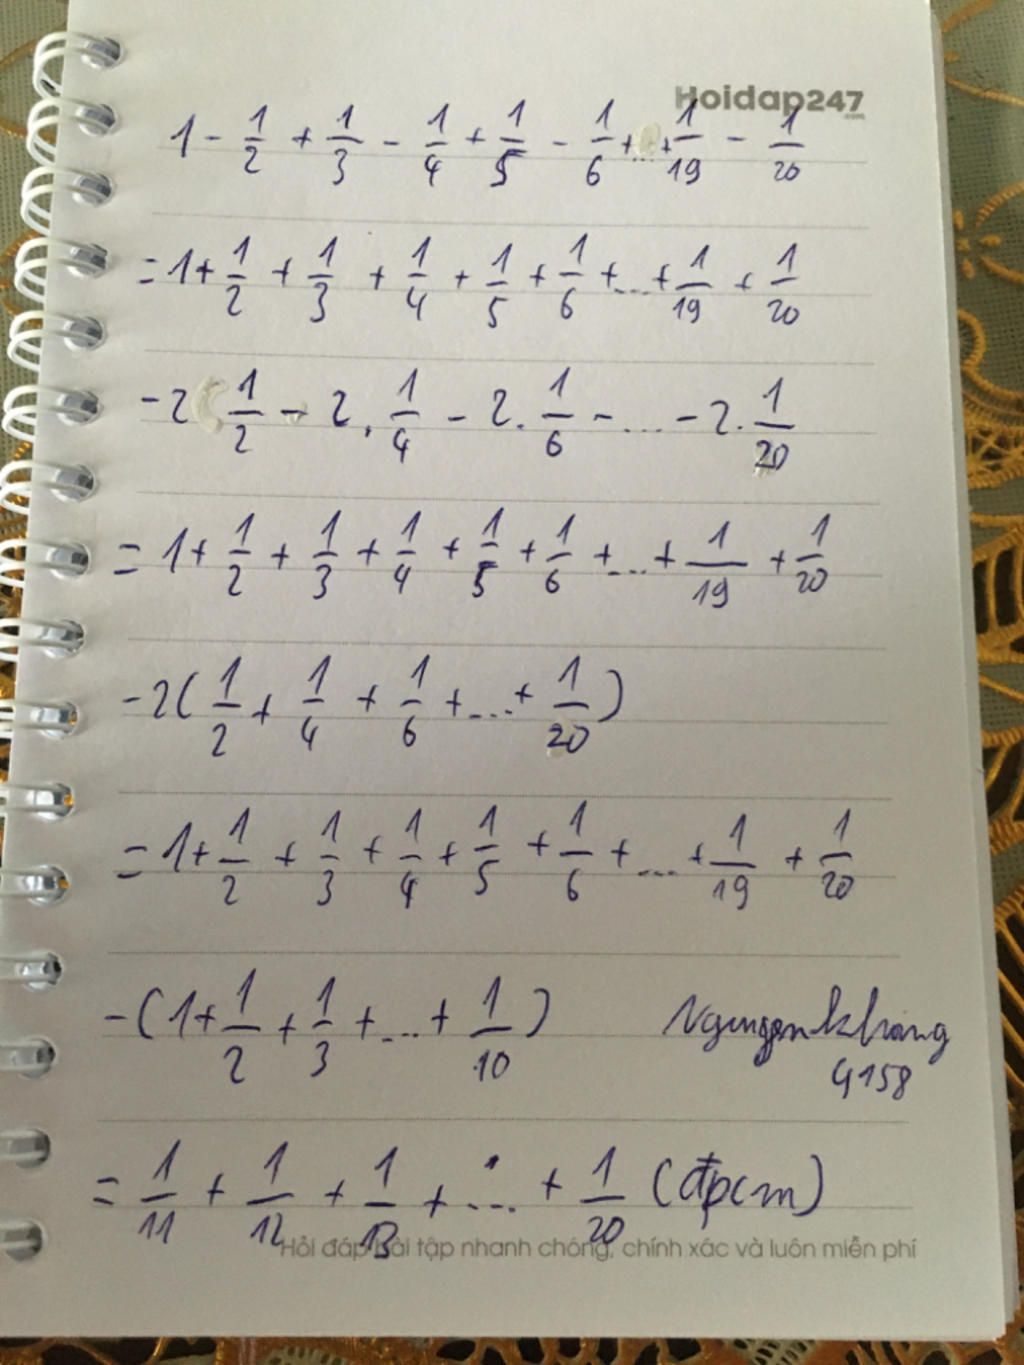 Hoidap247
.com
1 - 1/2 + 1/3 - 1/4 + 1/5 - 1/6 + ... + 1/19 - 1/20
= 1 + 1/2 + 1/3 + 1/4 + 1/5 + 1/6 + ... + 1/19 + 1/20
- 2 1/2 - 2 . 1/4 - 2 . 1/6 - ... - 2 . 1/20
= 1 + 1/2 + 1/3 + 1/4 + 1/5 + 1/6 + ... + 1/19 + 1/20
- 2 ( 1/2 + 1/4 + 1/6 + ... + 1/20 )
= 1 + 1/2 + 1/3 + 1/4 + 1/5 + 1/6 + ... + 1/19 + 1/20
- ( 1 + 1/2 + 1/3 + ... + 1/10 )
Nguyenkhang
4158
= 1/11 + 1/12 + 1/13 + ... + 1/20 (đpcm)
Hỏi đáp bài tập nhanh chóng, chính xác và luôn miễn phí